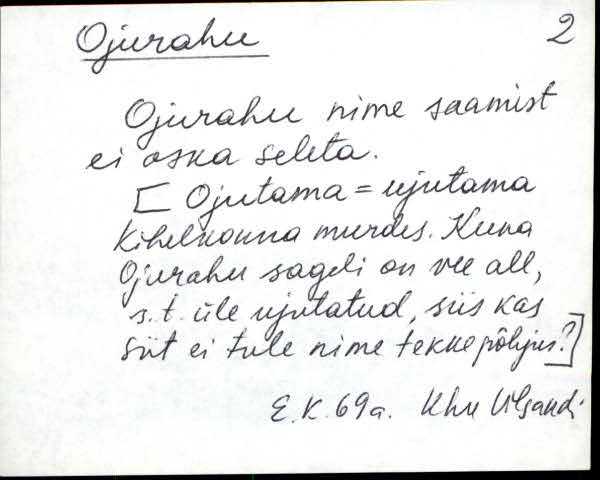 Ojurahu 2
Ojurahu nime saamist
ei oska seleta.
[ Ojutama = ujutama
Kihelkonna murdes. Kuna
Ojurahu sageli on vee all,
s.t. üle ujutatud, siis kas
siit ei tule nime tekke põhjus?]
E.K. 69 a. Khn Vilsandi